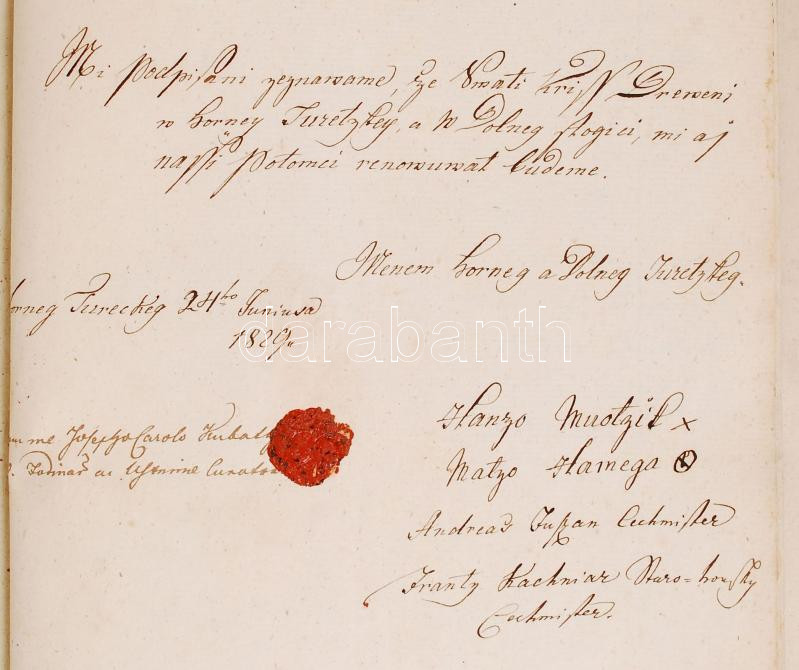 Mi podpisani zeznawame, že Smati Kriss Dreweni
w horney Turetzkey, a w Dolneg stogici, mi aj
nassi potomci renowuwat budeme.
Menem horneg a Dolneg Turetzkeg.
horneg Tureckeg 24ho Juniusa
1829
me Josepho Carolo Kubat
ac
darabanth
Hanzo Muotzik x
Matzo Hamega
Andreas Cechmister
Franty Kachniar Staro=horsky
Cechmister.